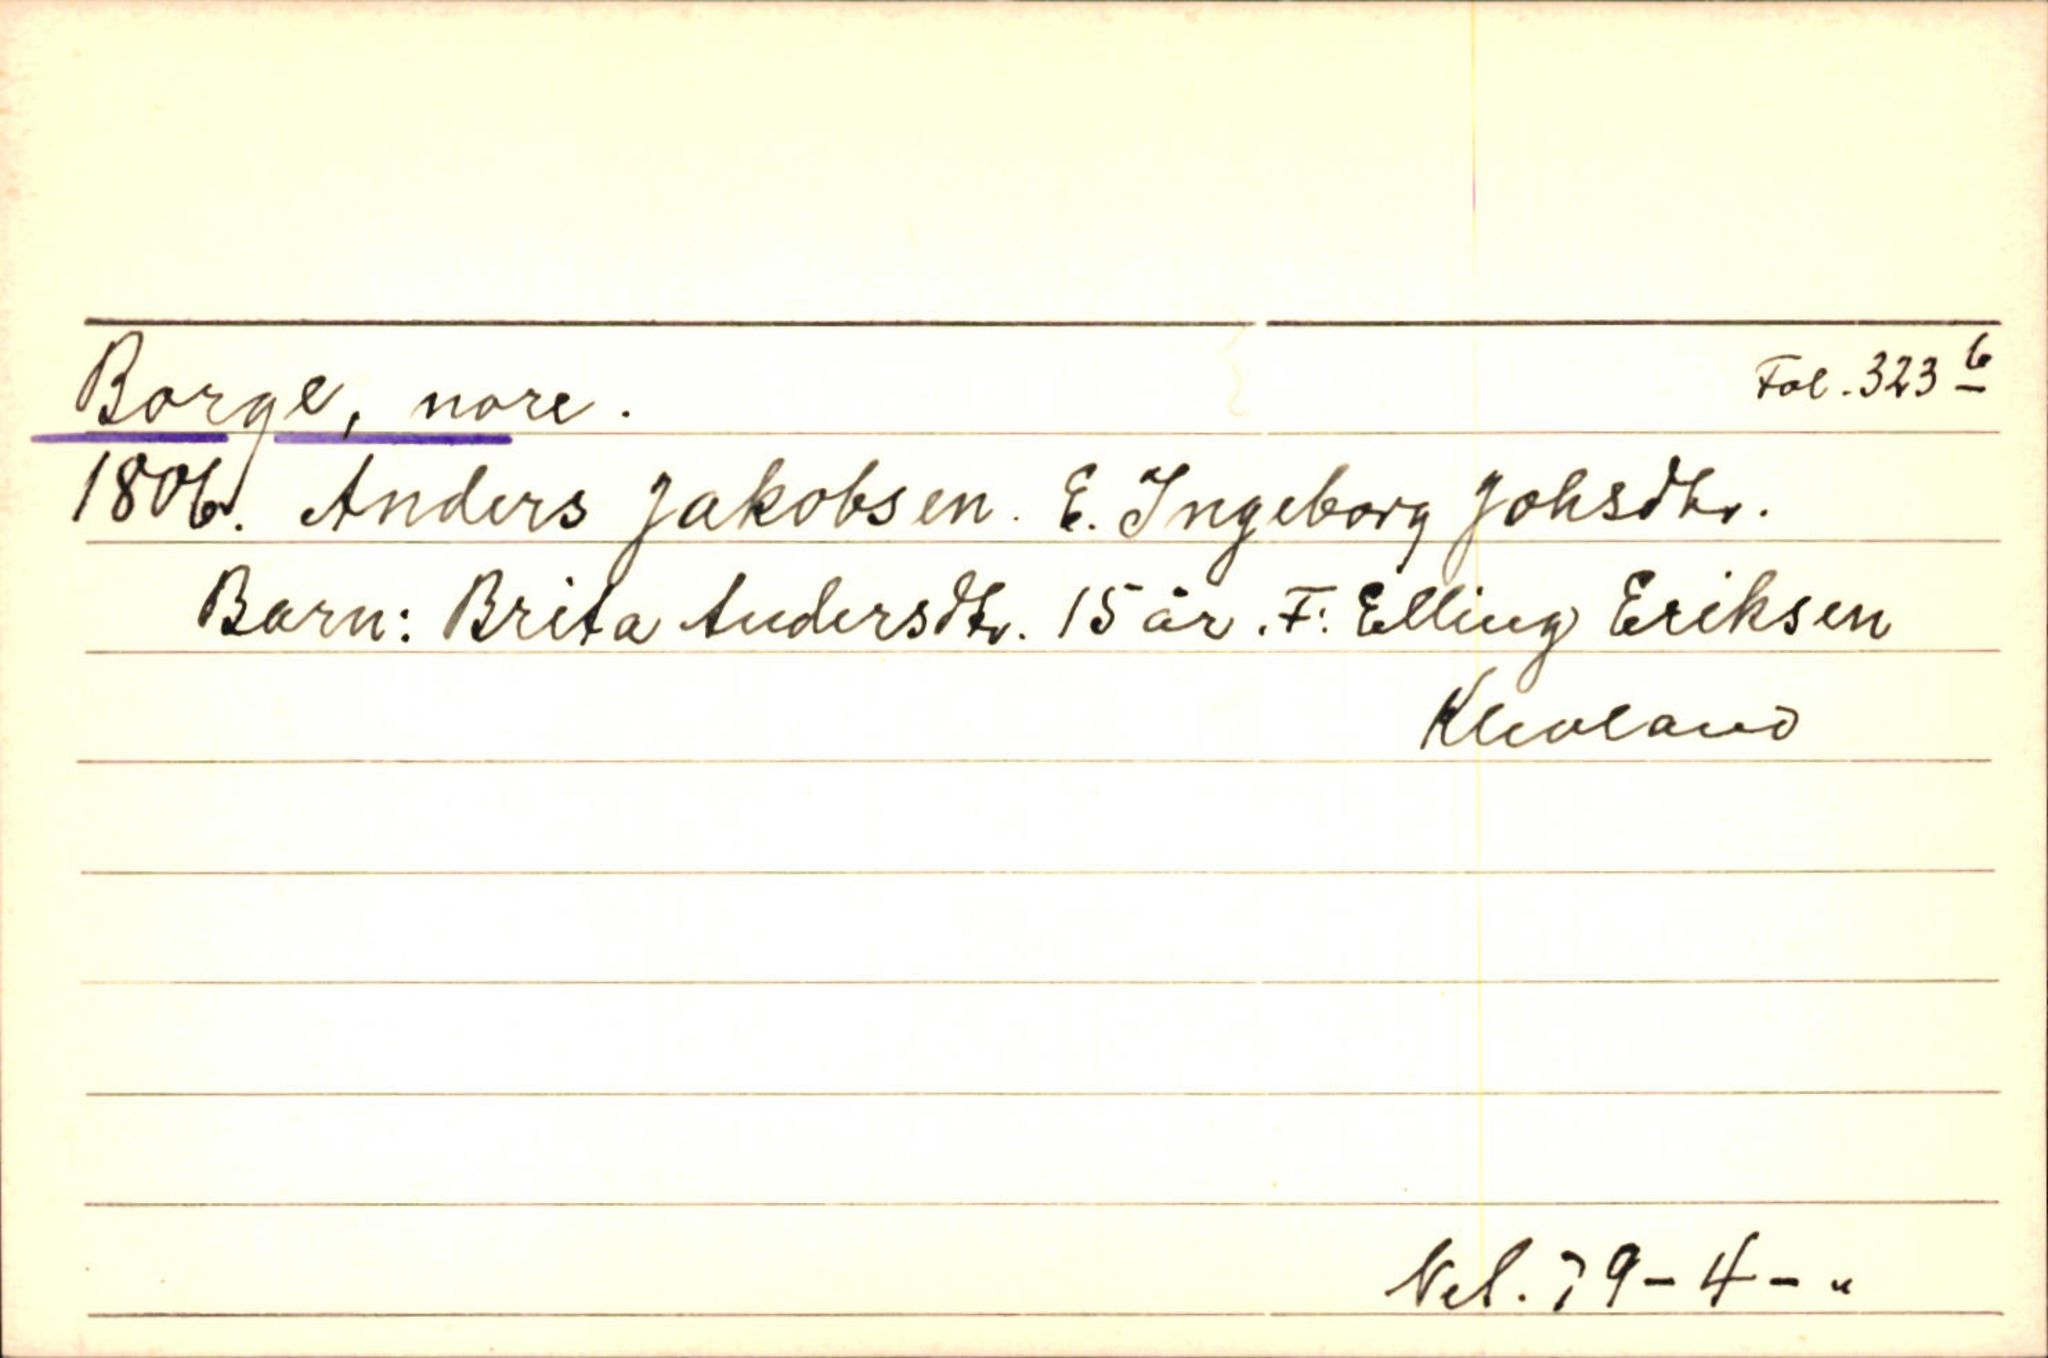 Borge, nore. Fol. 323 b
1806. Anders Jakobsen. E. Ingeborg Johsdtr.
Barn: Brita Andersdtr. 15 år. F: Elling Eriksen
Kleveland
Vel. 79-4-"